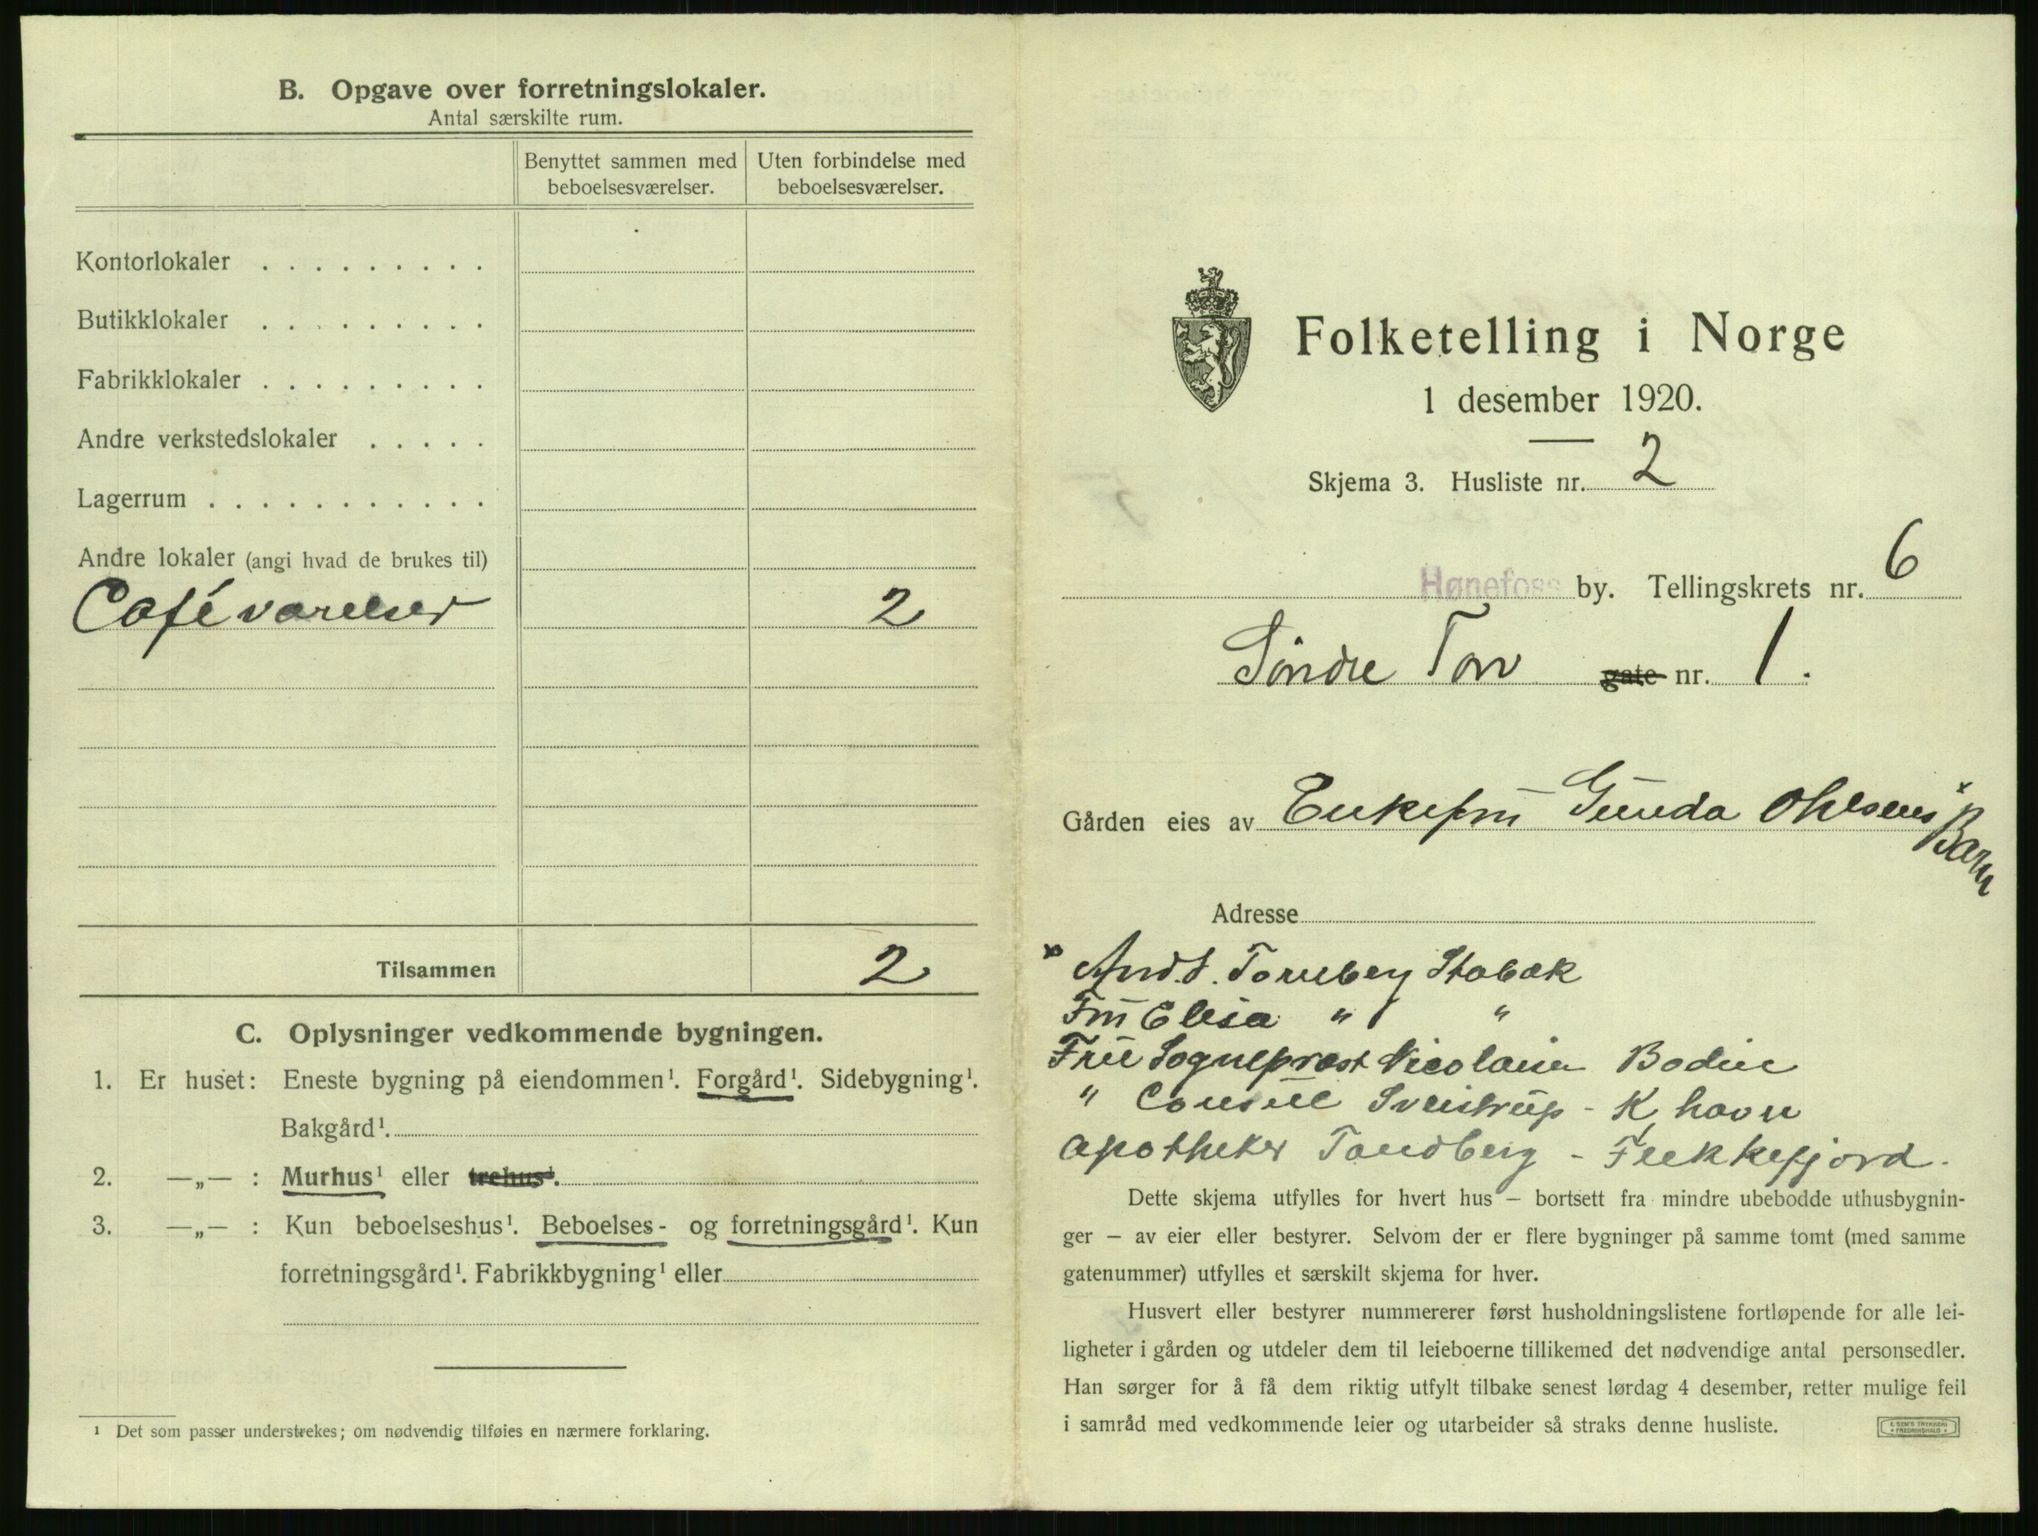 B. Opgave over forretningslokaler.
Antal særskilte rum.
Benyttet sammen med beboelsesværelser.
Uten forbindelse med beboelsesværelser.
Kontorlokaler . . . . . . . . .
Butikklokaler . . . . . . . . .
Fabrikklokaler . . . . . . . . .
Andre verkstedslokaler . . . . .
Lagerrum . . . . . . . . . . .
Andre lokaler (angi hvad de brukes til)
Caféværelser 2
Tilsammen 2
C. Oplysninger vedkommende bygningen.
1. Er huset: Eneste bygning på eiendommen¹. Forgård¹. Sidebygning¹.
Bakgård¹.
2. —„— : Murhus¹ eller trehus¹.
3. —„— : Kun beboelseshus¹. Beboelses- og forretningsgård¹. Kun
forretningsgård¹. Fabrikkbygning¹ eller
¹ Det som passer understrekes; om nødvendig tilføies en nærmere forklaring.
Folketelling i Norge
1 desember 1920.
Skjema 3. Husliste nr. 2
Hønefoss by. Tellingskrets nr. 6
Söndre Torv gate nr. 1.
Gården eies av Enkefru Gunda Ohlsens x Barn
Adresse
x And. S. Tornberg Stabæk
Fru Elisa " "
Frü Sogneprest Nicolaisen Bodin
" Consul Sveistrup - K havn
Apotheker Tandberg - Flekkefjord.
Dette skjema utfylles for hvert hus – bortsett fra mindre ubebodde uthusbygnin-
ger – av eier eller bestyrer. Selvom der er flere bygninger på samme tomt (med samme
gatenummer) utfylles et særskilt skjema for hver.
Husvert eller bestyrer nummererer først husholdningslistene fortløpende for alle lei-
ligheter i gården og utdeler dem til leieboerne tillikemed det nødvendige antal personsedler.
Han sørger for å få dem riktig utfylt tilbake senest lørdag 4 desember, retter mulige feil
i samråd med vedkommende leier og utarbeider så straks denne husliste.